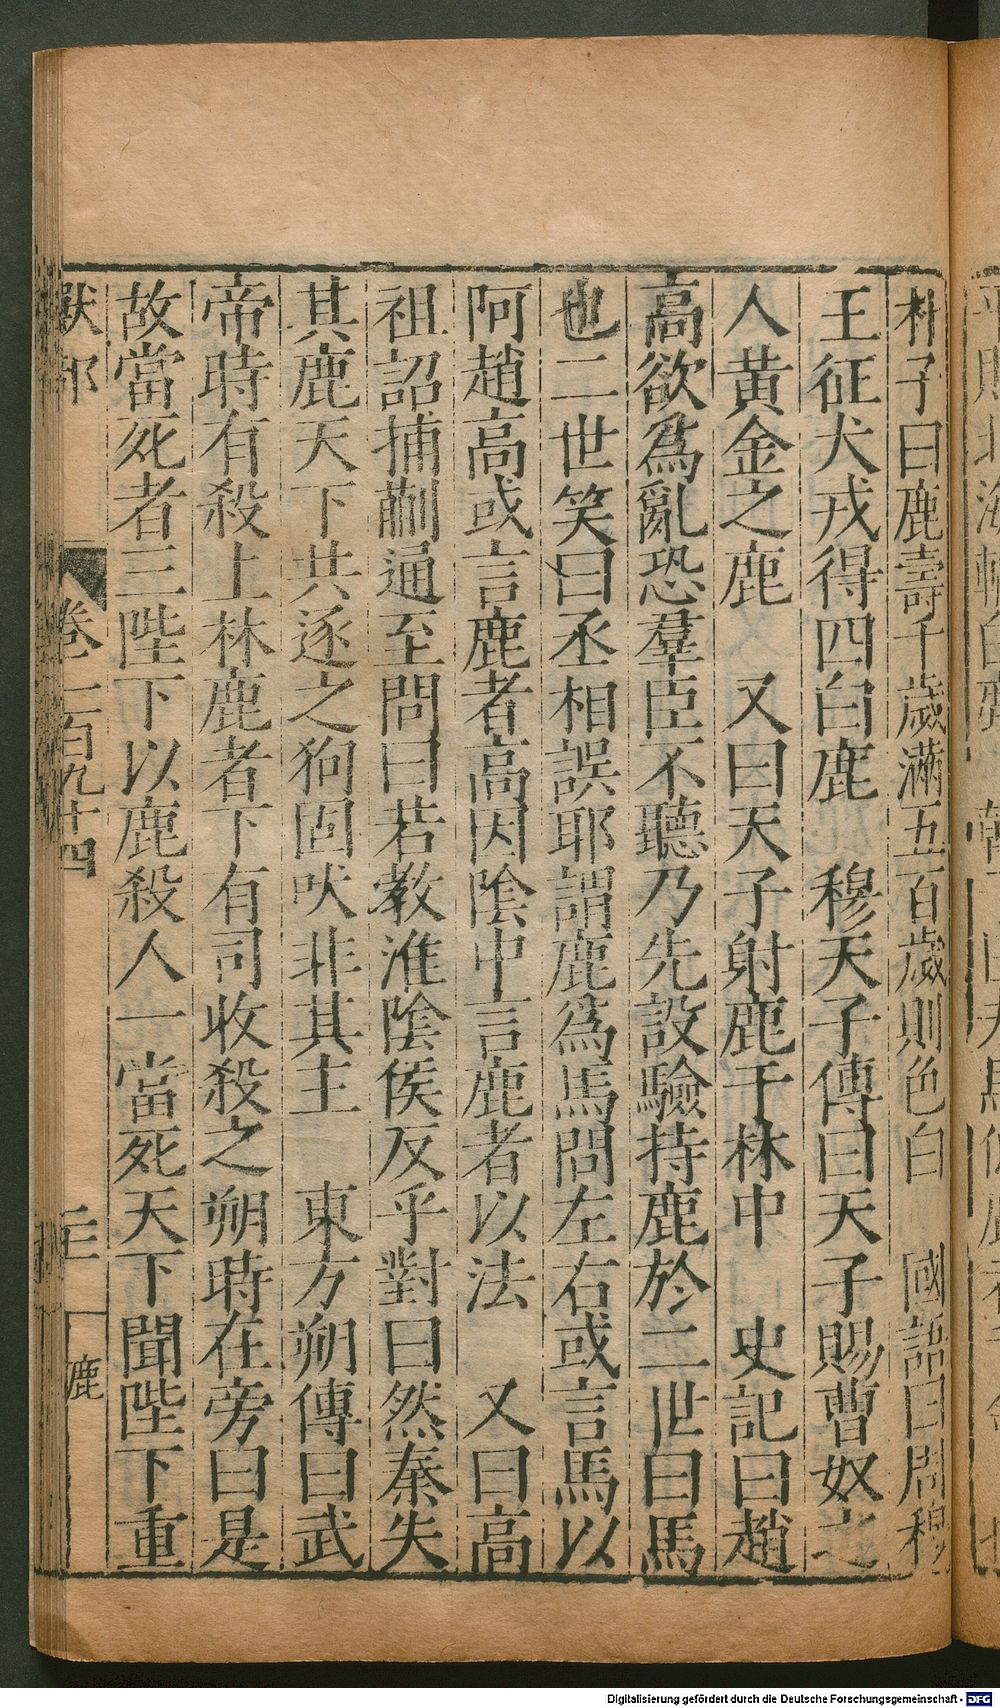 朴子曰鹿壽千歲滿五百歲則色白　國語曰周穆
王征犬戎得四白鹿　穆天子傳曰天子賜曹奴之
人黃金之鹿　又曰天子射鹿于林中　史記曰趙
高欲爲亂恐羣臣不聽乃先設驗持鹿於二世曰馬
也二世笑曰丞相誤耶謂鹿爲馬問左右或言馬以
阿趙高或言鹿者高因陰中言鹿者以法　又曰高
祖詔捕蒯通至問曰若教淮陰侯反乎對曰然秦失
其鹿天下共逐之狗固吠非其主　東方朔傳曰武
帝時有殺上林鹿者下有司收殺之朔時在旁曰是
故當死者三陛下以鹿殺人一當死天下聞陛下重
獸部　卷二百九十四　二　鹿
Digitalisierung gefördert durch die Deutsche Forschungsgemeinschaft - DFG